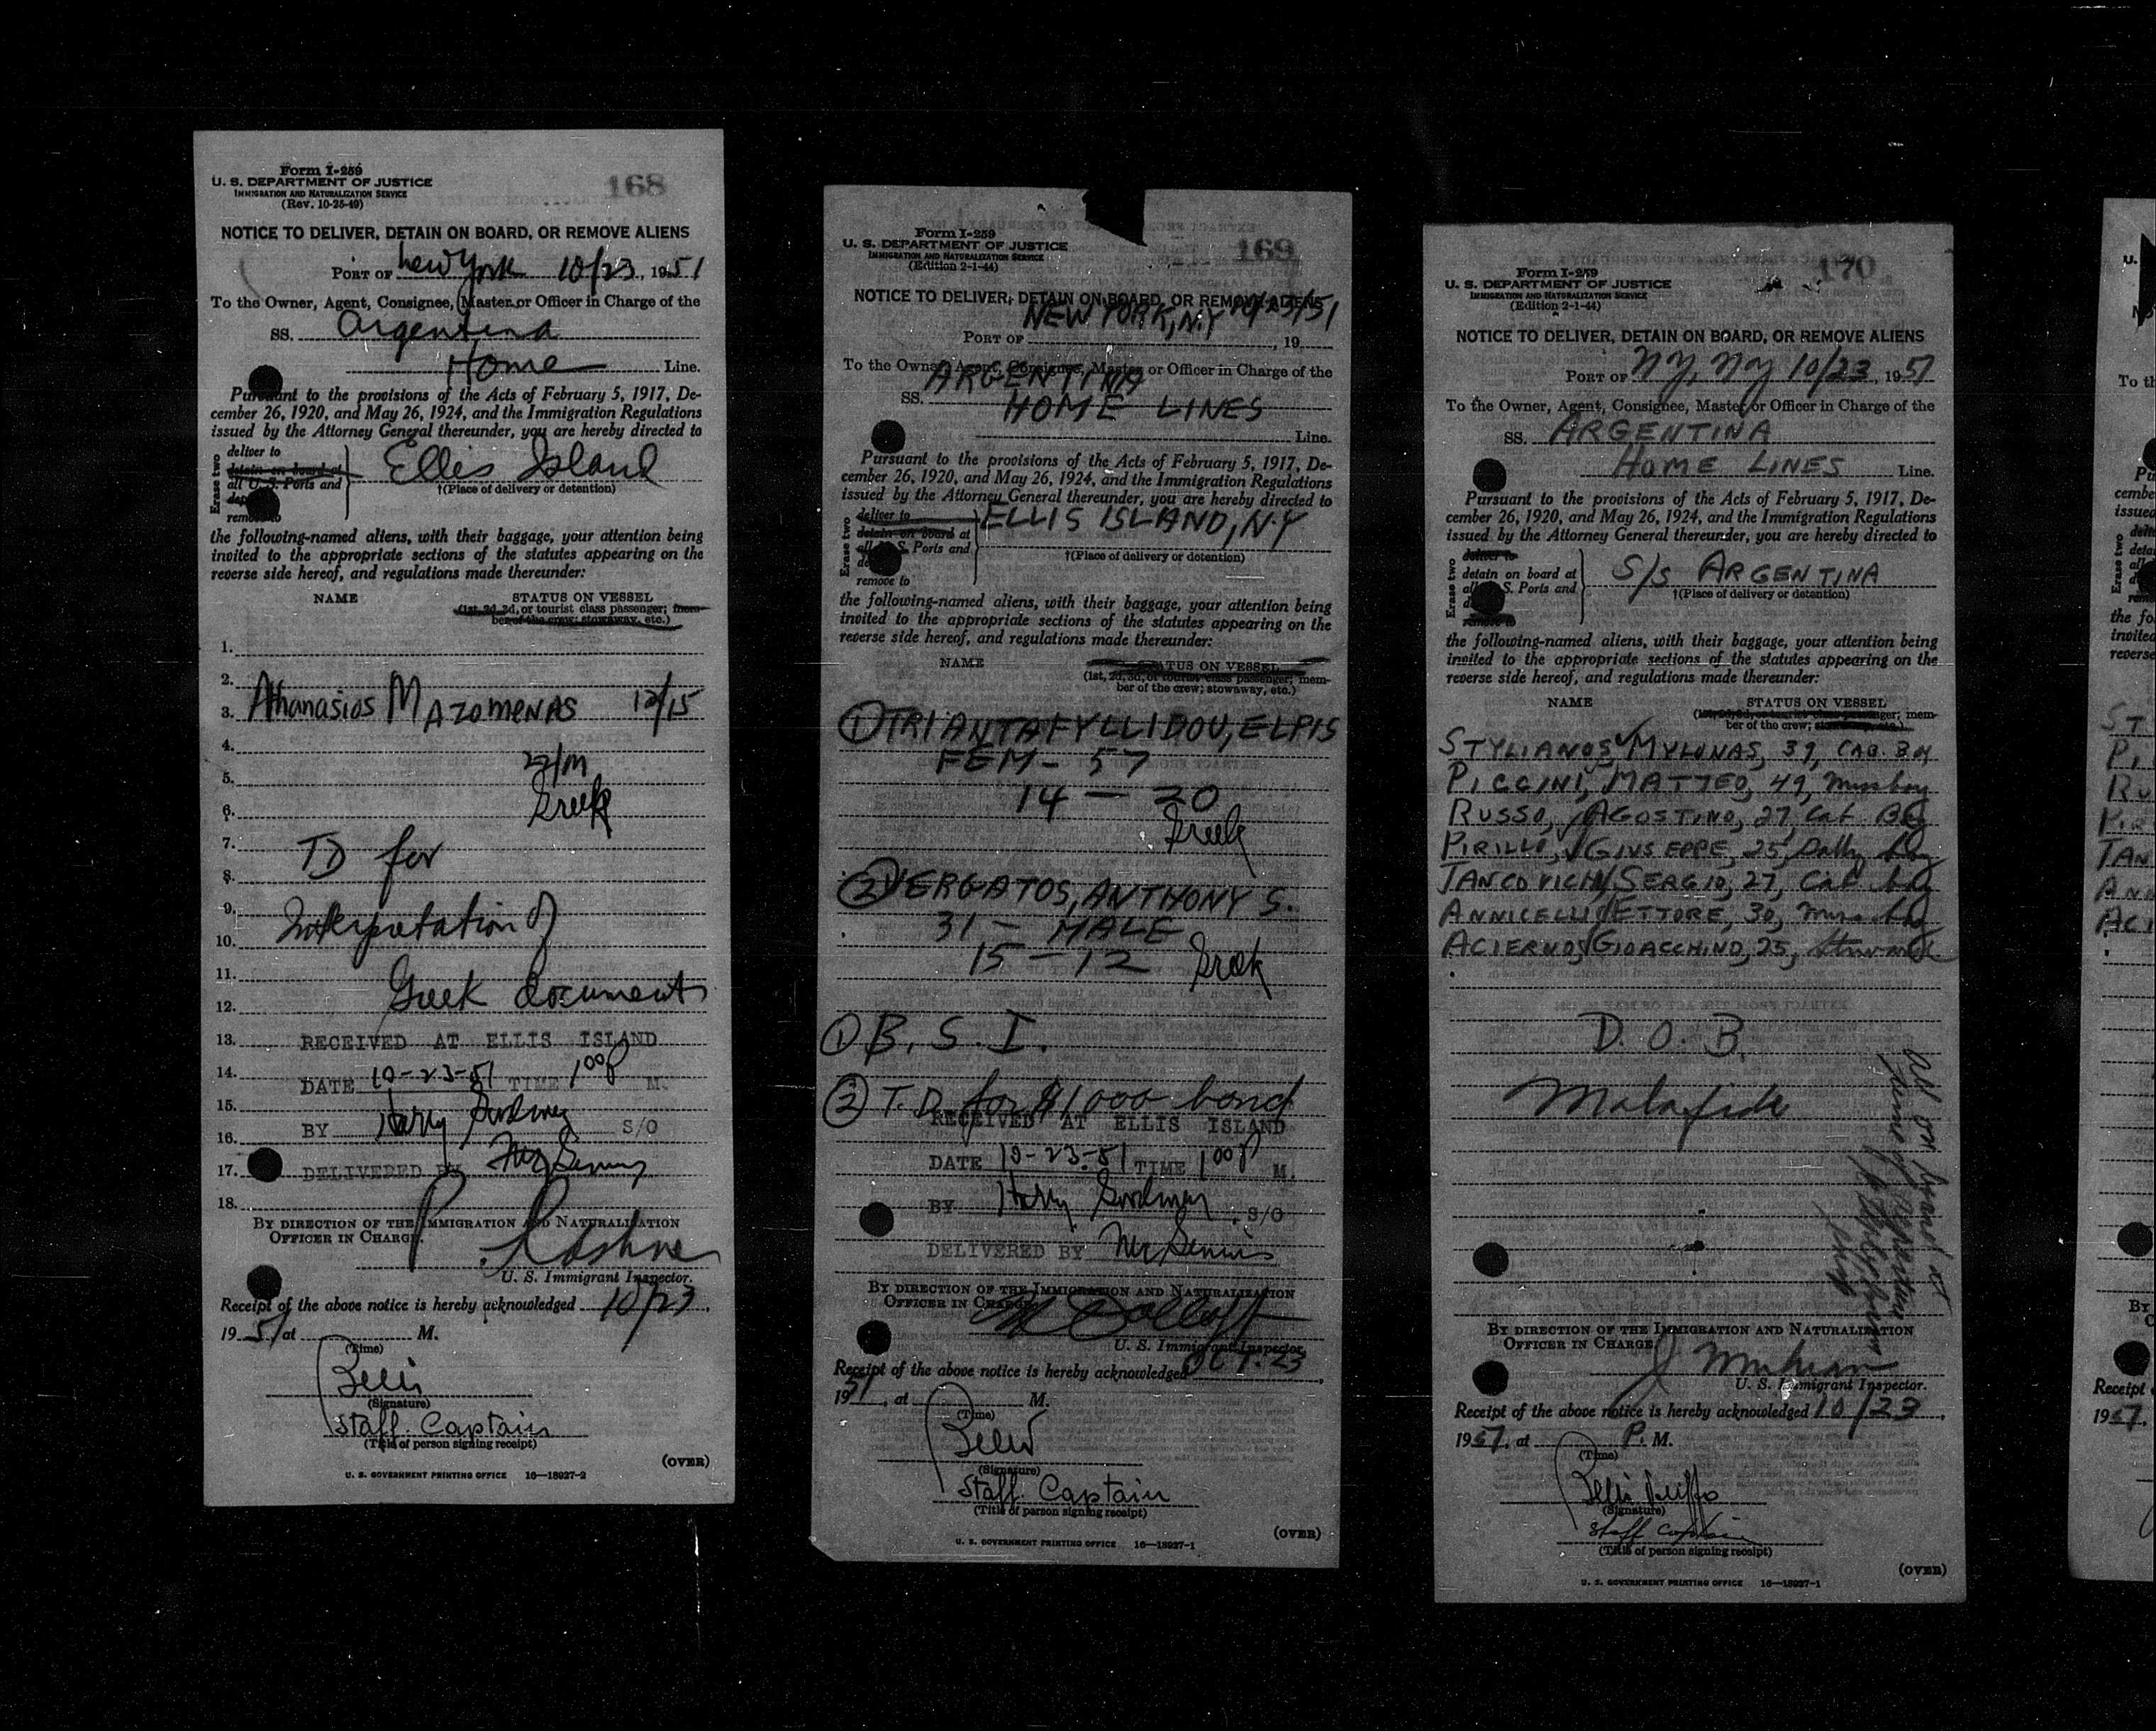 Form I-259
U. S. DEPARTMENT OF JUSTICE
IMMIGRATION AND NATURALIZATION SERVICE
(Rev. 10-25-49)
168
NOTICE TO DELIVER, DETAIN ON BOARD, OR REMOVE ALIENS
PORT OF New York 10/23, 1951
To the Owner, Agent, Consignee, Master or Officer in Charge of the
SS. Argentina
Home Line.
Pursuant to the provisions of the Acts of February 5, 1917, De-
cember 26, 1920, and May 26, 1924, and the Immigration Regulations
issued by the Attorney General thereunder, you are hereby directed to
Erase two
deliver to
detain on board at
all U. S. Ports and
remove to
Ellis Island
†(Place of delivery or detention)
the following-named aliens, with their baggage, your attention being
invited to the appropriate sections of the statutes appearing on the
reverse side hereof, and regulations made thereunder:
NAME STATUS ON VESSEL
(1st, 2d, 3d, or tourist class passenger; mem-
ber of the crew; stowaway, etc.)
1.
2.
3. Athanasios MAZOMENAS 12/15
4.
22/M
5.
6. Greek
7. TD for
8.
9. Interpretation of
10.
11.
12. Greek documents
13. RECEIVED AT ELLIS ISLAND
14. DATE 10-23-51 TIME 1 00 P M.
15.
BY Harry S/O
16.
17. DELIVERED BY
18.
BY DIRECTION OF THE IMMIGRATION AND NATURALIZATION
OFFICER IN CHARGE.
U. S. Immigrant Inspector.
Receipt of the above notice is hereby acknowledged 10/23,
1951 at M.
(Time)
(Signature)
Staff. Captain
(Title of person signing receipt)
(OVER)
U. S. GOVERNMENT PRINTING OFFICE 16—18927-2
Form I-259
U. S. DEPARTMENT OF JUSTICE
IMMIGRATION AND NATURALIZATION SERVICE
(Edition 2-1-44)
169
NOTICE TO DELIVER, DETAIN ON BOARD, OR REMOVE ALIENS
NEW YORK, N.Y 10/23/51
PORT OF , 19
To the Owner, Agent, Consignee, Master or Officer in Charge of the
SS. ARGENTINA
HOME LINES
Line.
Pursuant to the provisions of the Acts of February 5, 1917, De-
cember 26, 1920, and May 26, 1924, and the Immigration Regulations
issued by the Attorney General thereunder, you are hereby directed to
Erase two
deliver to
detain on board at
all U. S. Ports and
remove to
ELLIS ISLAND, N.Y
†(Place of delivery or detention)
the following-named aliens, with their baggage, your attention being
invited to the appropriate sections of the statutes appearing on the
reverse side hereof, and regulations made thereunder:
NAME STATUS ON VESSEL
(1st, 2d, 3d, or tourist class passenger; mem-
ber of the crew; stowaway, etc.)
① TRIANTAFYLLIDOU, ELPIS
FEM - 57
14 — 20
Greek
② VERGATOS, ANTHONY S.
31 — MALE
15 — 12 Greek
① B. S. I.
② T.D. for $1000 bond
RECEIVED AT ELLIS ISLAND
DATE 10-23-51 TIME 1 00 P M.
BY Harry S/O
DELIVERED BY
BY DIRECTION OF THE IMMIGRATION AND NATURALIZATION
OFFICER IN CHARGE.
U. S. Immigrant Inspector.
Receipt of the above notice is hereby acknowledged OCT. 23,
1951, at M.
(Time)
(Signature)
Staff. Captain
(Title of person signing receipt)
(OVER)
U. S. GOVERNMENT PRINTING OFFICE 16—18927-1
Form I-259
U. S. DEPARTMENT OF JUSTICE
IMMIGRATION AND NATURALIZATION SERVICE
(Edition 2-1-44)
170
NOTICE TO DELIVER, DETAIN ON BOARD, OR REMOVE ALIENS
PORT OF NY, NY 10/23, 1951
To the Owner, Agent, Consignee, Master or Officer in Charge of the
SS. ARGENTINA
HOME LINES Line.
Pursuant to the provisions of the Acts of February 5, 1917, De-
cember 26, 1920, and May 26, 1924, and the Immigration Regulations
issued by the Attorney General thereunder, you are hereby directed to
Erase two
deliver to
detain on board at
all U. S. Ports and
remove to
S/S ARGENTINA
†(Place of delivery or detention)
the following-named aliens, with their baggage, your attention being
invited to the appropriate sections of the statutes appearing on the
reverse side hereof, and regulations made thereunder:
NAME STATUS ON VESSEL
(1st, 2d, 3d, or tourist class passenger; mem-
ber of the crew; stowaway, etc.)
STYLIANOS, MYLONAS, 39, CAB. Boy
PICCINI, MATTEO, 49, Messboy
RUSSO, AGOSTINO, 27, Cab Boy
PIRILLO, GIUSEPPE, 25, Boy
JANCOVICH, SERGIO, 27, Cab boy
ANNICELLI, ETTORE, 30, Mess boy
ACIERNO, GIOACCHINO, 25,
D. O. B.
Malafide
All on board at
time of
BY DIRECTION OF THE IMMIGRATION AND NATURALIZATION
OFFICER IN CHARGE.
U. S. Immigrant Inspector.
Receipt of the above notice is hereby acknowledged 10/23,
1951, at P. M.
(Time)
(Signature)
Staff Captain
(Title of person signing receipt)
(OVER)
U. S. GOVERNMENT PRINTING OFFICE 16—18927-1